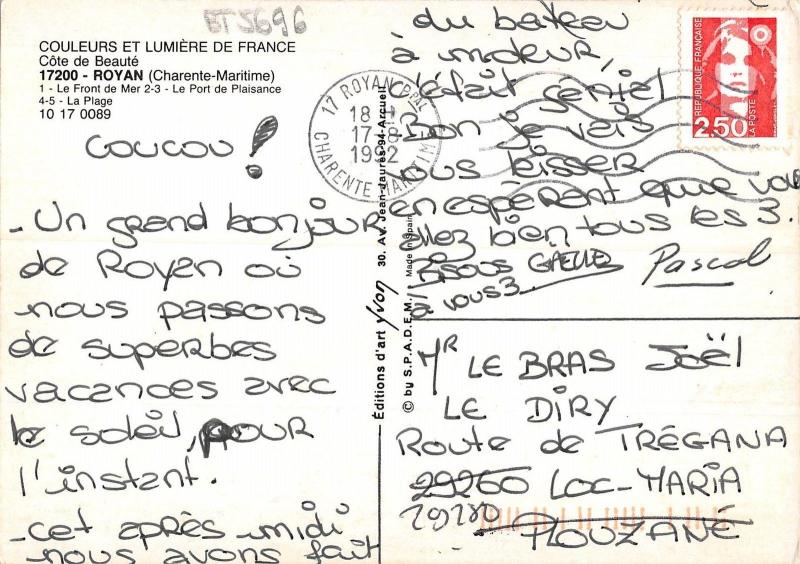 BT5696
COULEURS ET LUMIÈRE DE FRANCE
Côte de Beauté
17200 - ROYAN (Charente-Maritime)
1 - Le Front de Mer 2-3 - Le Port de Plaisance
4-5 - La Plage
10 17 0089
coucou !
- Un grand bonjour
de Royan où
nous passons
de superbes
vacances avec
le soleil, pour
l'instant.
- cet après midi
nous avons fait
du bateau
à moteur,
c'était génial
Bon je vais
vous laisser
en espérant que vous
allez bien tous les 3.
Bisous GAELLE Pascal
à vous 3
17 ROYAN PPAL
18 H
17-8
1992
CHARENTE MARITIME
REPUBLIQUE FRANÇAISE
LA POSTE
2,50
Editions d'art yvon 30. Av. Jean-Jaurès-94-Arcueil
© by S.P.A.D.E.M. Made in Spain
Mr LE BRAS Joël
LE DIRY
Route de TRÉGANA
29260 LOC-MARIA
29280 PLOUZANÉ